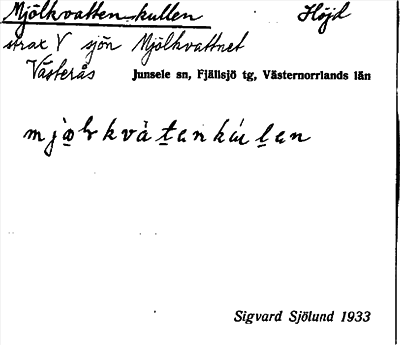 Mjölkvatten-kullen Höjd
strax V sjön Mjölkvattnet
Västerås Junsele sn, Fjällsjö tg, Västernorrlands län
Sigvard Sjölund 1933